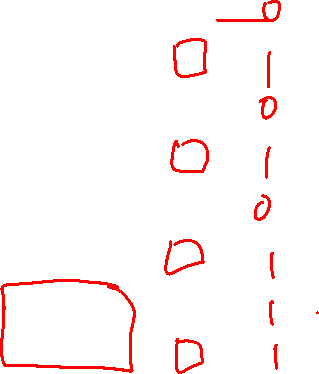 0
1
0
1
0
1
1
1